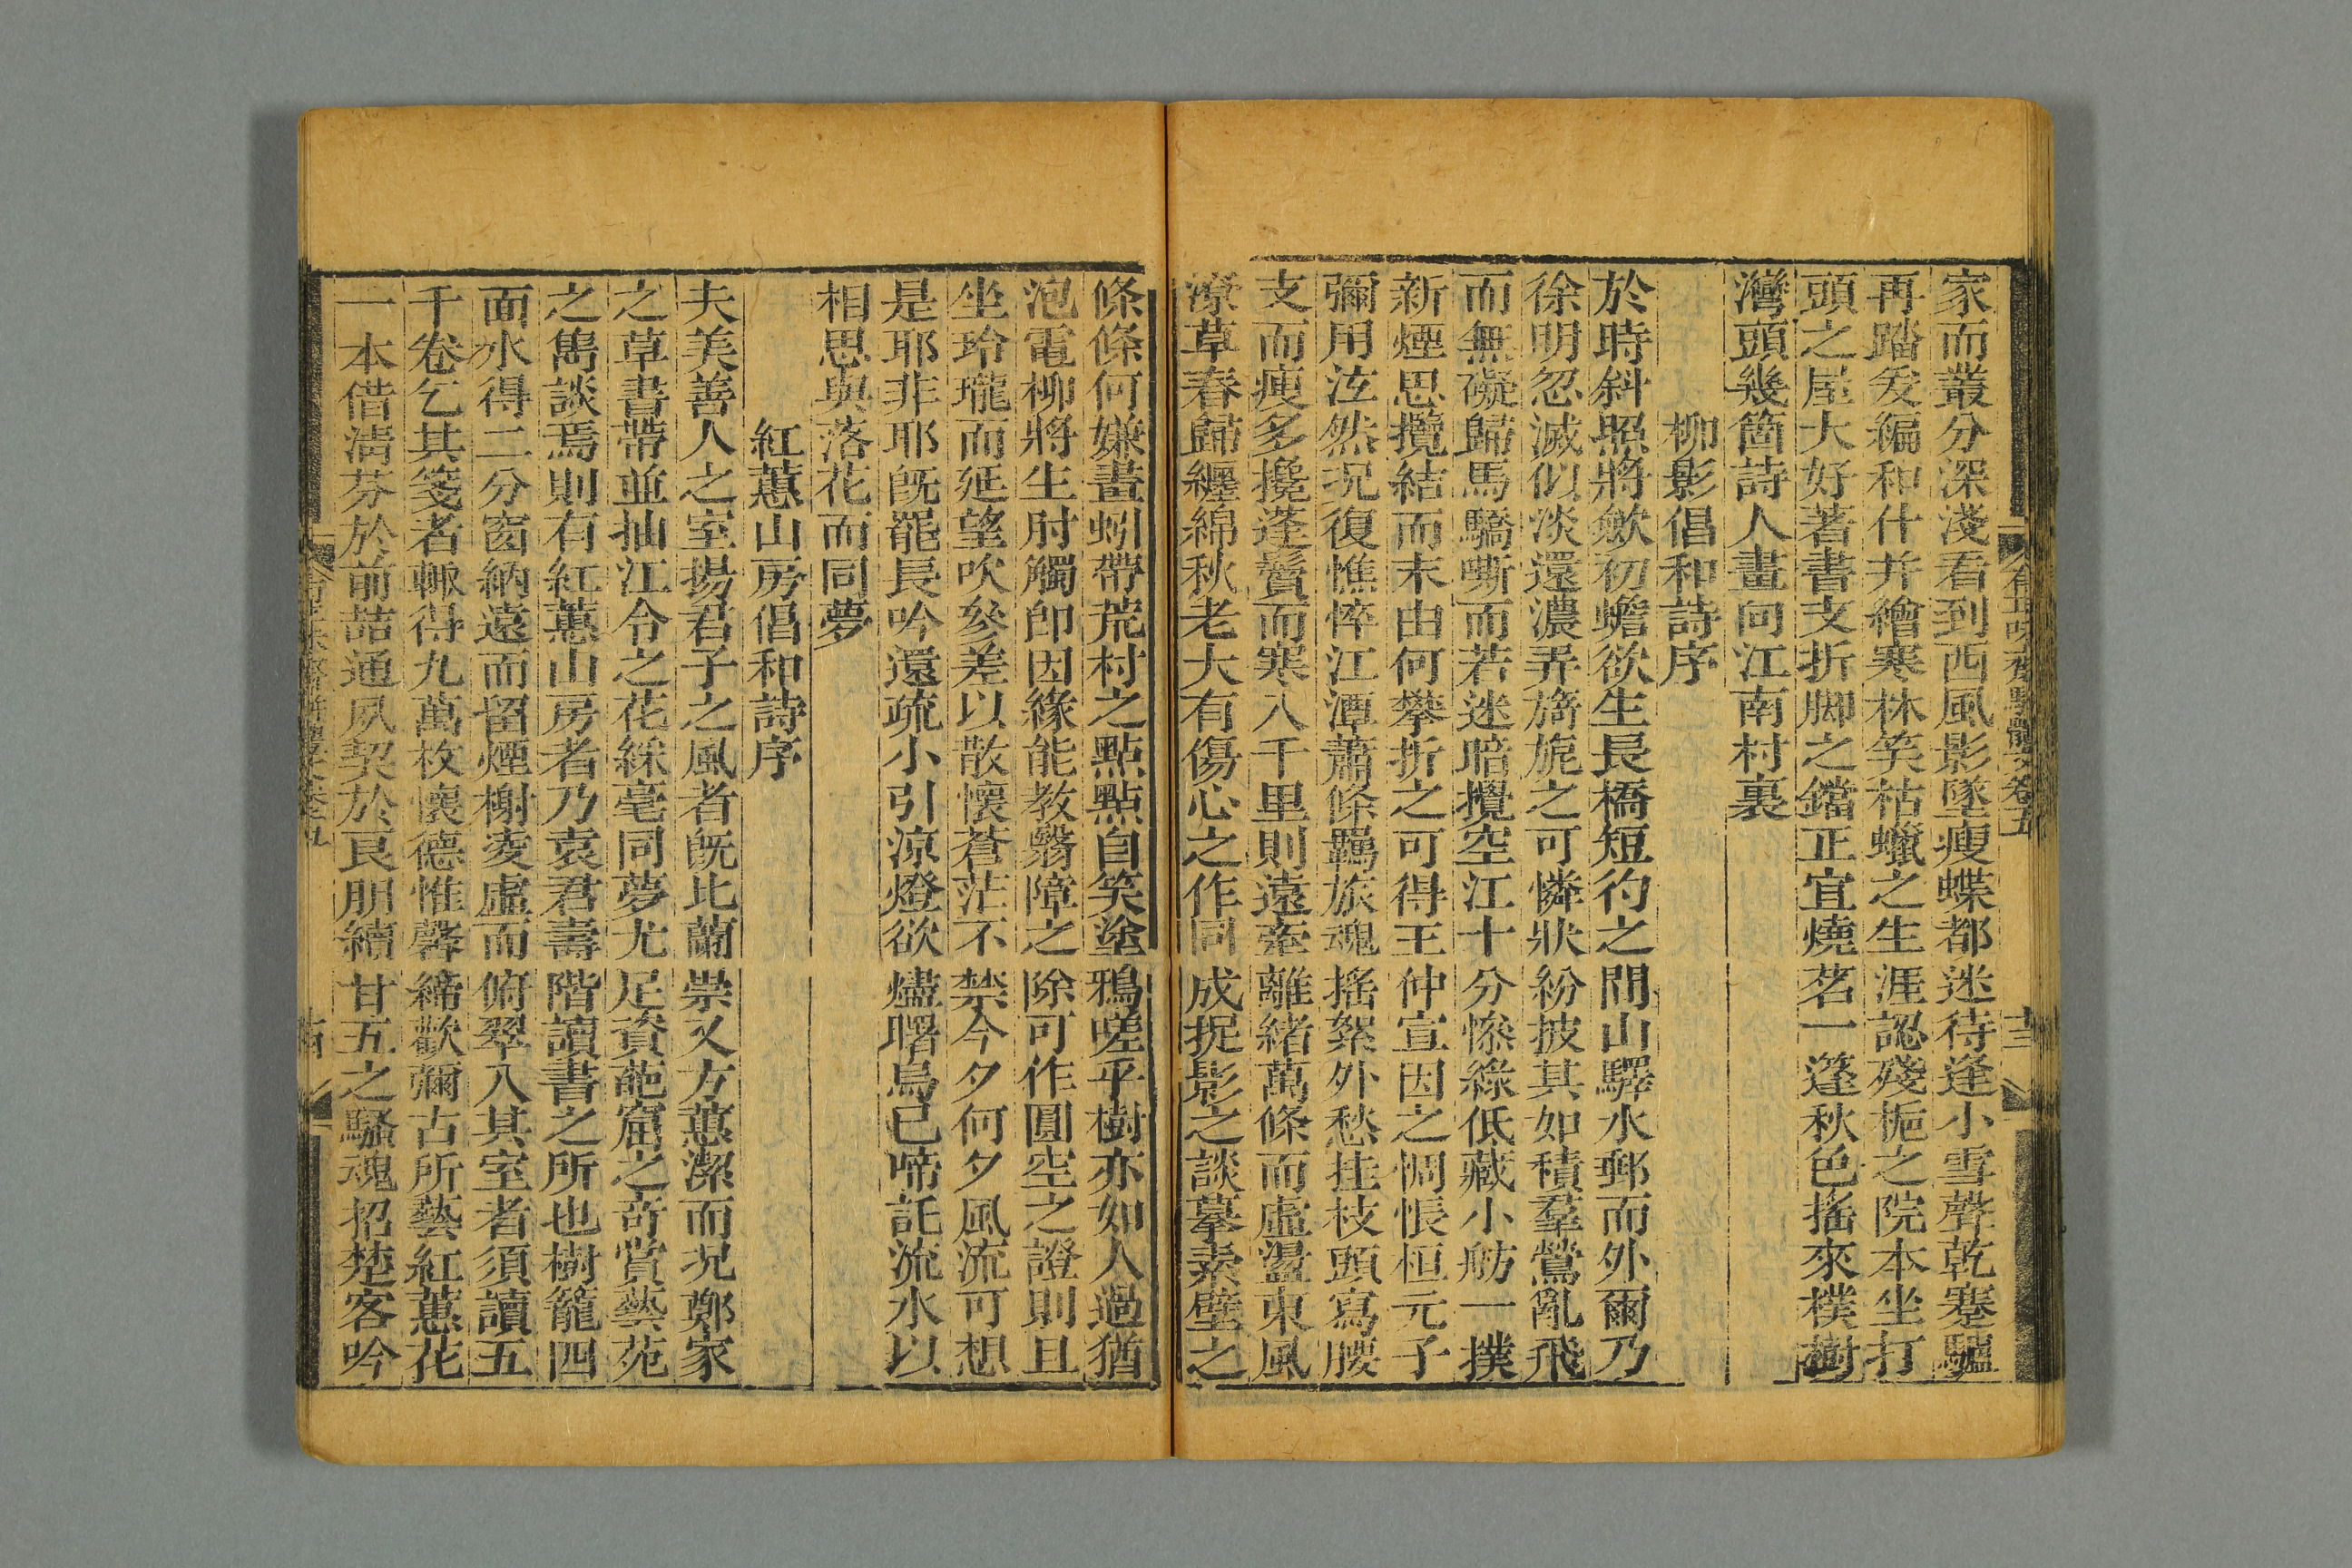 家而叢分深淺看到西風影墜瘦蝶都迷待逢小雪聲乾蹇驢
再踏爰編和什并繪寒林笑枯蠟之生涯認殘梔之院本坐打
頭之屋大好著書支折脚之鐺正宜燒茗一篷秋色搖來樸樹
灣頭幾箇詩人畫向江南村裏
柳影倡和詩序
於時斜照將斂初蟾欲生長橋短彴之間山驛水郵而外爾乃
徐明忽滅似淡還濃弄旖旎之可憐狀紛披其如積羣鶯亂飛
而無礙歸馬驕嘶而若迷暗攪空江十分慘綠低藏小舫一撲
新煙思攬結而末由何攀折之可得王仲宣因之惆悵桓元子
彌用泫然況復憔悴江潭蕭條羈旅魂搖絮外愁挂枝頭寫腰
支而瘦多攙蓬鬢而寒八千里則遠牽離緒萬條而虛盪東風
潦草春歸纏綿秋老大有傷心之作同成捉影之談摹素壁之
條條何嫌畫蚓帶荒村之點點自笑塗鴉嗟乎樹亦如人過猶
泡電柳將生肘觸即因緣能教翳障之除可作圓空之證則且
坐玲瓏而延望吹參差以散懷蒼茫不禁今夕何夕風流可想
是耶非耶旣罷長吟還疏小引涼燈欲燼曙烏已啼託流水以
相思與落花而同夢
紅蕙山房倡和詩序
夫美善人之室揚君子之風者旣比蘭祟又方蕙潔而況鄭家
之草書帶並抽江令之花綵毫同夢尤足資葩窟之奇賞藝苑
之雋談焉則有紅蕙山房者乃袁君壽階讀書之所也樹籠四
面水得二分窗納遠而留煙榭夌虛而俯翠八其室者須讀五
千卷乞其箋者輙得九萬枚懷德惟馨締歡彌古所藝紅蕙花
一本借淸芬於前喆通夙契於良朋續甘五之騷魂招楚客吟